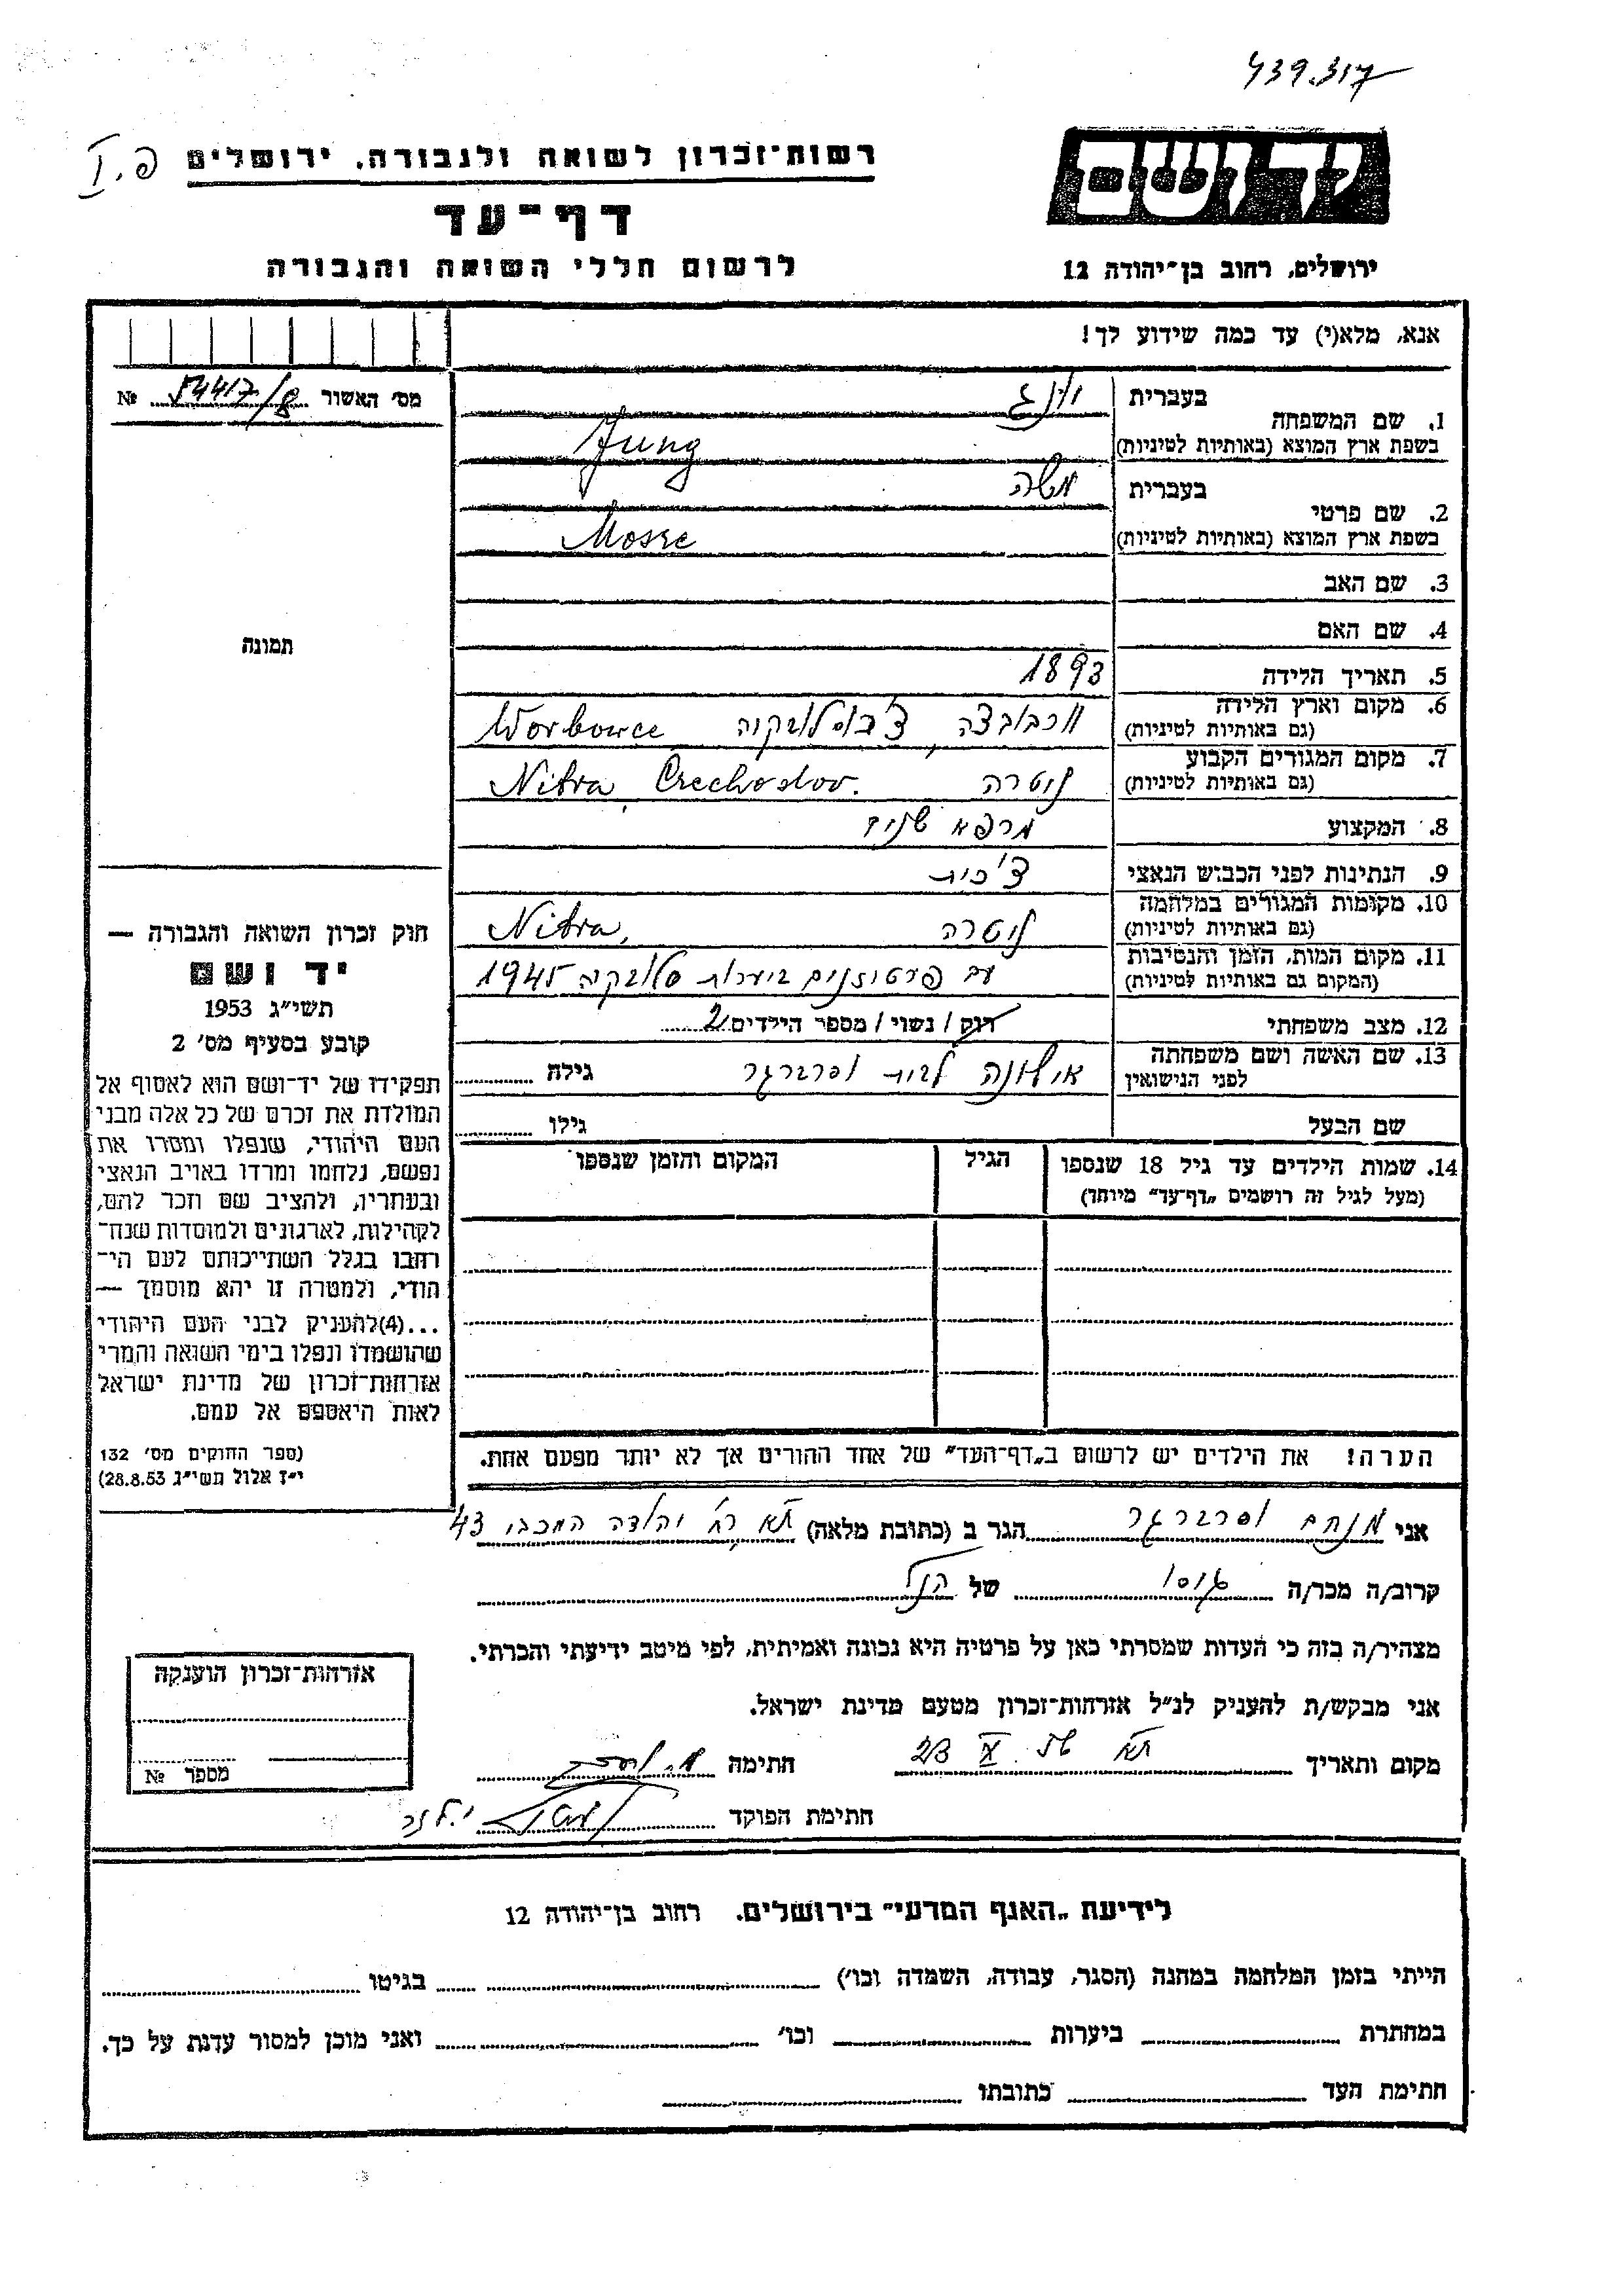 439.317
רשות־זכרון לשואה ולגבורה, ירושלים
דף־עד
לרשום חללי השואה והגבורה
יד ושם
ירושלים, רחוב בן־יהודה 12
אנא, מלא(י) עד כמה שידוע לך!
מס׳ האשור 54417/8 №
1. שם המשפחה
בעברית יונג
בשפת ארץ המוצא (באותיות לטיניות) Jung
2. שם פרטי
בעברית משה
בשפת ארץ המוצא (באותיות לטיניות)
3. שם האב
4. שם האם
5. תאריך הלידה 1893
6. מקום וארץ הלידה
(גם באותיות לטיניות) צ׳כוסלובקיה Worbowce
7. מקום המגורים הקבוע
(גם באותיות לטיניות) ניטרה Nitra, Czechoslov.
8. המקצוע מרפא שניים
9. הנתינות לפני הכבוש הנאצי צ׳כית
10. מקומות המגורים במלחמה
(גם באותיות לטיניות) ניטרה Nitra,
11. מקום המות, הזמן והנסיבות
(המקום גם באותיות לטיניות) עם פרטיזנים ביערות סלובקיה 1945
12. מצב משפחתי רוק / נשוי / מספר הילדים 2
13. שם האשה ושם משפחתה
לפני הנישואין אילונה לבית גילה
שם הבעל גילו
14. שמות הילדים עד גיל 18 שנספו
(מעל לגיל זה רושמים „דף־עד״ מיוחד)
הגיל
המקום והזמן שנספו
הערה! את הילדים יש לרשום ב„דף־העד״ של אחד ההורים אך לא יותר מפעם אחת.
תמונה
חוק זכרון השואה והגבורה —
יד ושם
תשי״ג 1953
קובע בסעיף מס׳ 2
תפקידו של יד־ושם הוא לאסוף אל
המולדת את זכרם של כל אלה מבני
העם היהודי, שנפלו ומסרו את
נפשם, נלחמו ומרדו באויב הנאצי
ובעוזריו, ולהציב שם וזכר להם,
לקהילות, לארגונים ולמוסדות שנח־
רחבו בגלל השתייכותם לעם הי־
הודי, ולמטרה זו יהא מוסמך —
...(4)להעניק לבני העם היהודי
שהושמדו ונפלו בימי השואה והמרי
אזרחות־זכרון של מדינת ישראל
לאות היאספם אל עמם.
(ספר החוקים מס׳ 132
י״ז אלול תשי״ג 28.8.53)
אני מנחם הגר ב (כתובת מלאה) ת״א רח׳ יהודה המכבי 43
קרוב/ה מכר/ה גיסו של הנ״ל
מצהיר/ה בזה כי העדות שמסרתי כאן על פרטיה היא נכונה ואמיתית, לפי מיטב ידיעתי והכרתי.
אני מבקש/ת להעניק לנ״ל אזרחות־זכרון מטעם מדינת ישראל.
מקום ותאריך ת״א חתימה
חתימת הפוקד
אזרחות־זכרון הוענקה
מספר №
לידיעת „האגף המדעי״ בירושלים, רחוב בן־יהודה 12
הייתי בזמן המלחמה במחנה (הסגר, עבודה, השמדה וכו׳) בגיטו
במחתרת ביערות וכו׳ ואני מוכן למסור עדות על כך.
חתימת העד כתובתו